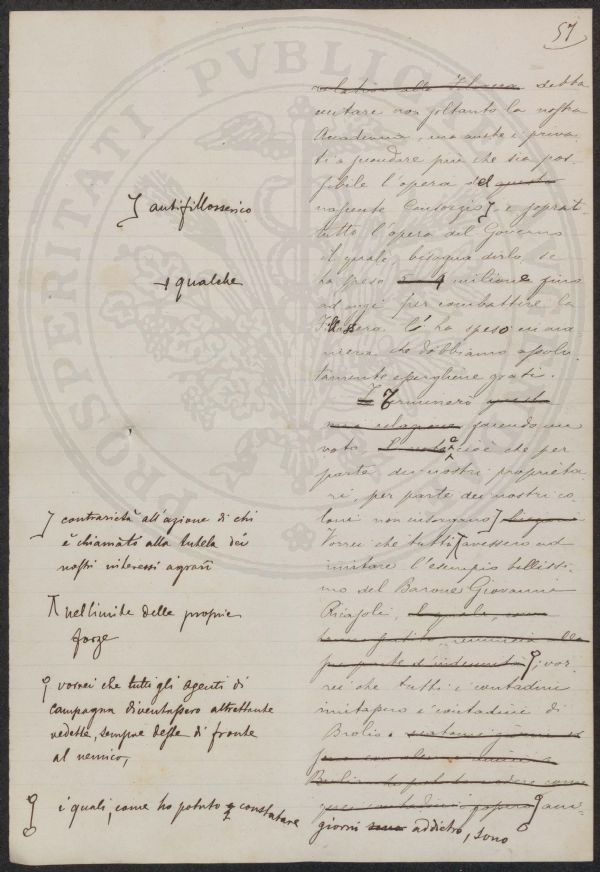 57
PROSPERITATI PVBLICAE
relativa alla debba
invitare non soltanto la nostra
Accademia, ma anche i priva-
ti a secondare più che sia pos-
sibile l'opera del questo
nascente Consorzio, e soprat-
tutto l'opera del Governo
il quale, bisogna dirlo, se
ha speso 3 - 4 milione fino
ad oggi per combattere la
Fillossera l'ha speso in ma-
niera che dobbiamo assolu-
tamente essergliene grati.
Terminerò questa
mia relazione, facendo un
voto, cioè che per
parte dei nostri proprieta-
ri, per parte dei nostri co-
loni non insorgano
Vorrei che tutti avessero ad
imitare l'esempio bellissi-
mo del Barone Giovanni
Ricasoli, il quale,
rinunciò alla
sua parte d'indennità, vor-
rei che tutti i contadini
imitassero i contadini di
Brolio

Brolio ho potuto vedere come
quei contadini
giorni sono addietro, sono
antifillosserico
qualche
contrarietà all'azione di chi
è chiamato alla tutela dei
nostri interessi agrari
nel limite delle proprie
forze
vorrei che tutti gli agenti di
campagna diventassero altrettante
vedette, sempre deste di fronte
al nemico,
i quali, come ho potuto constatare